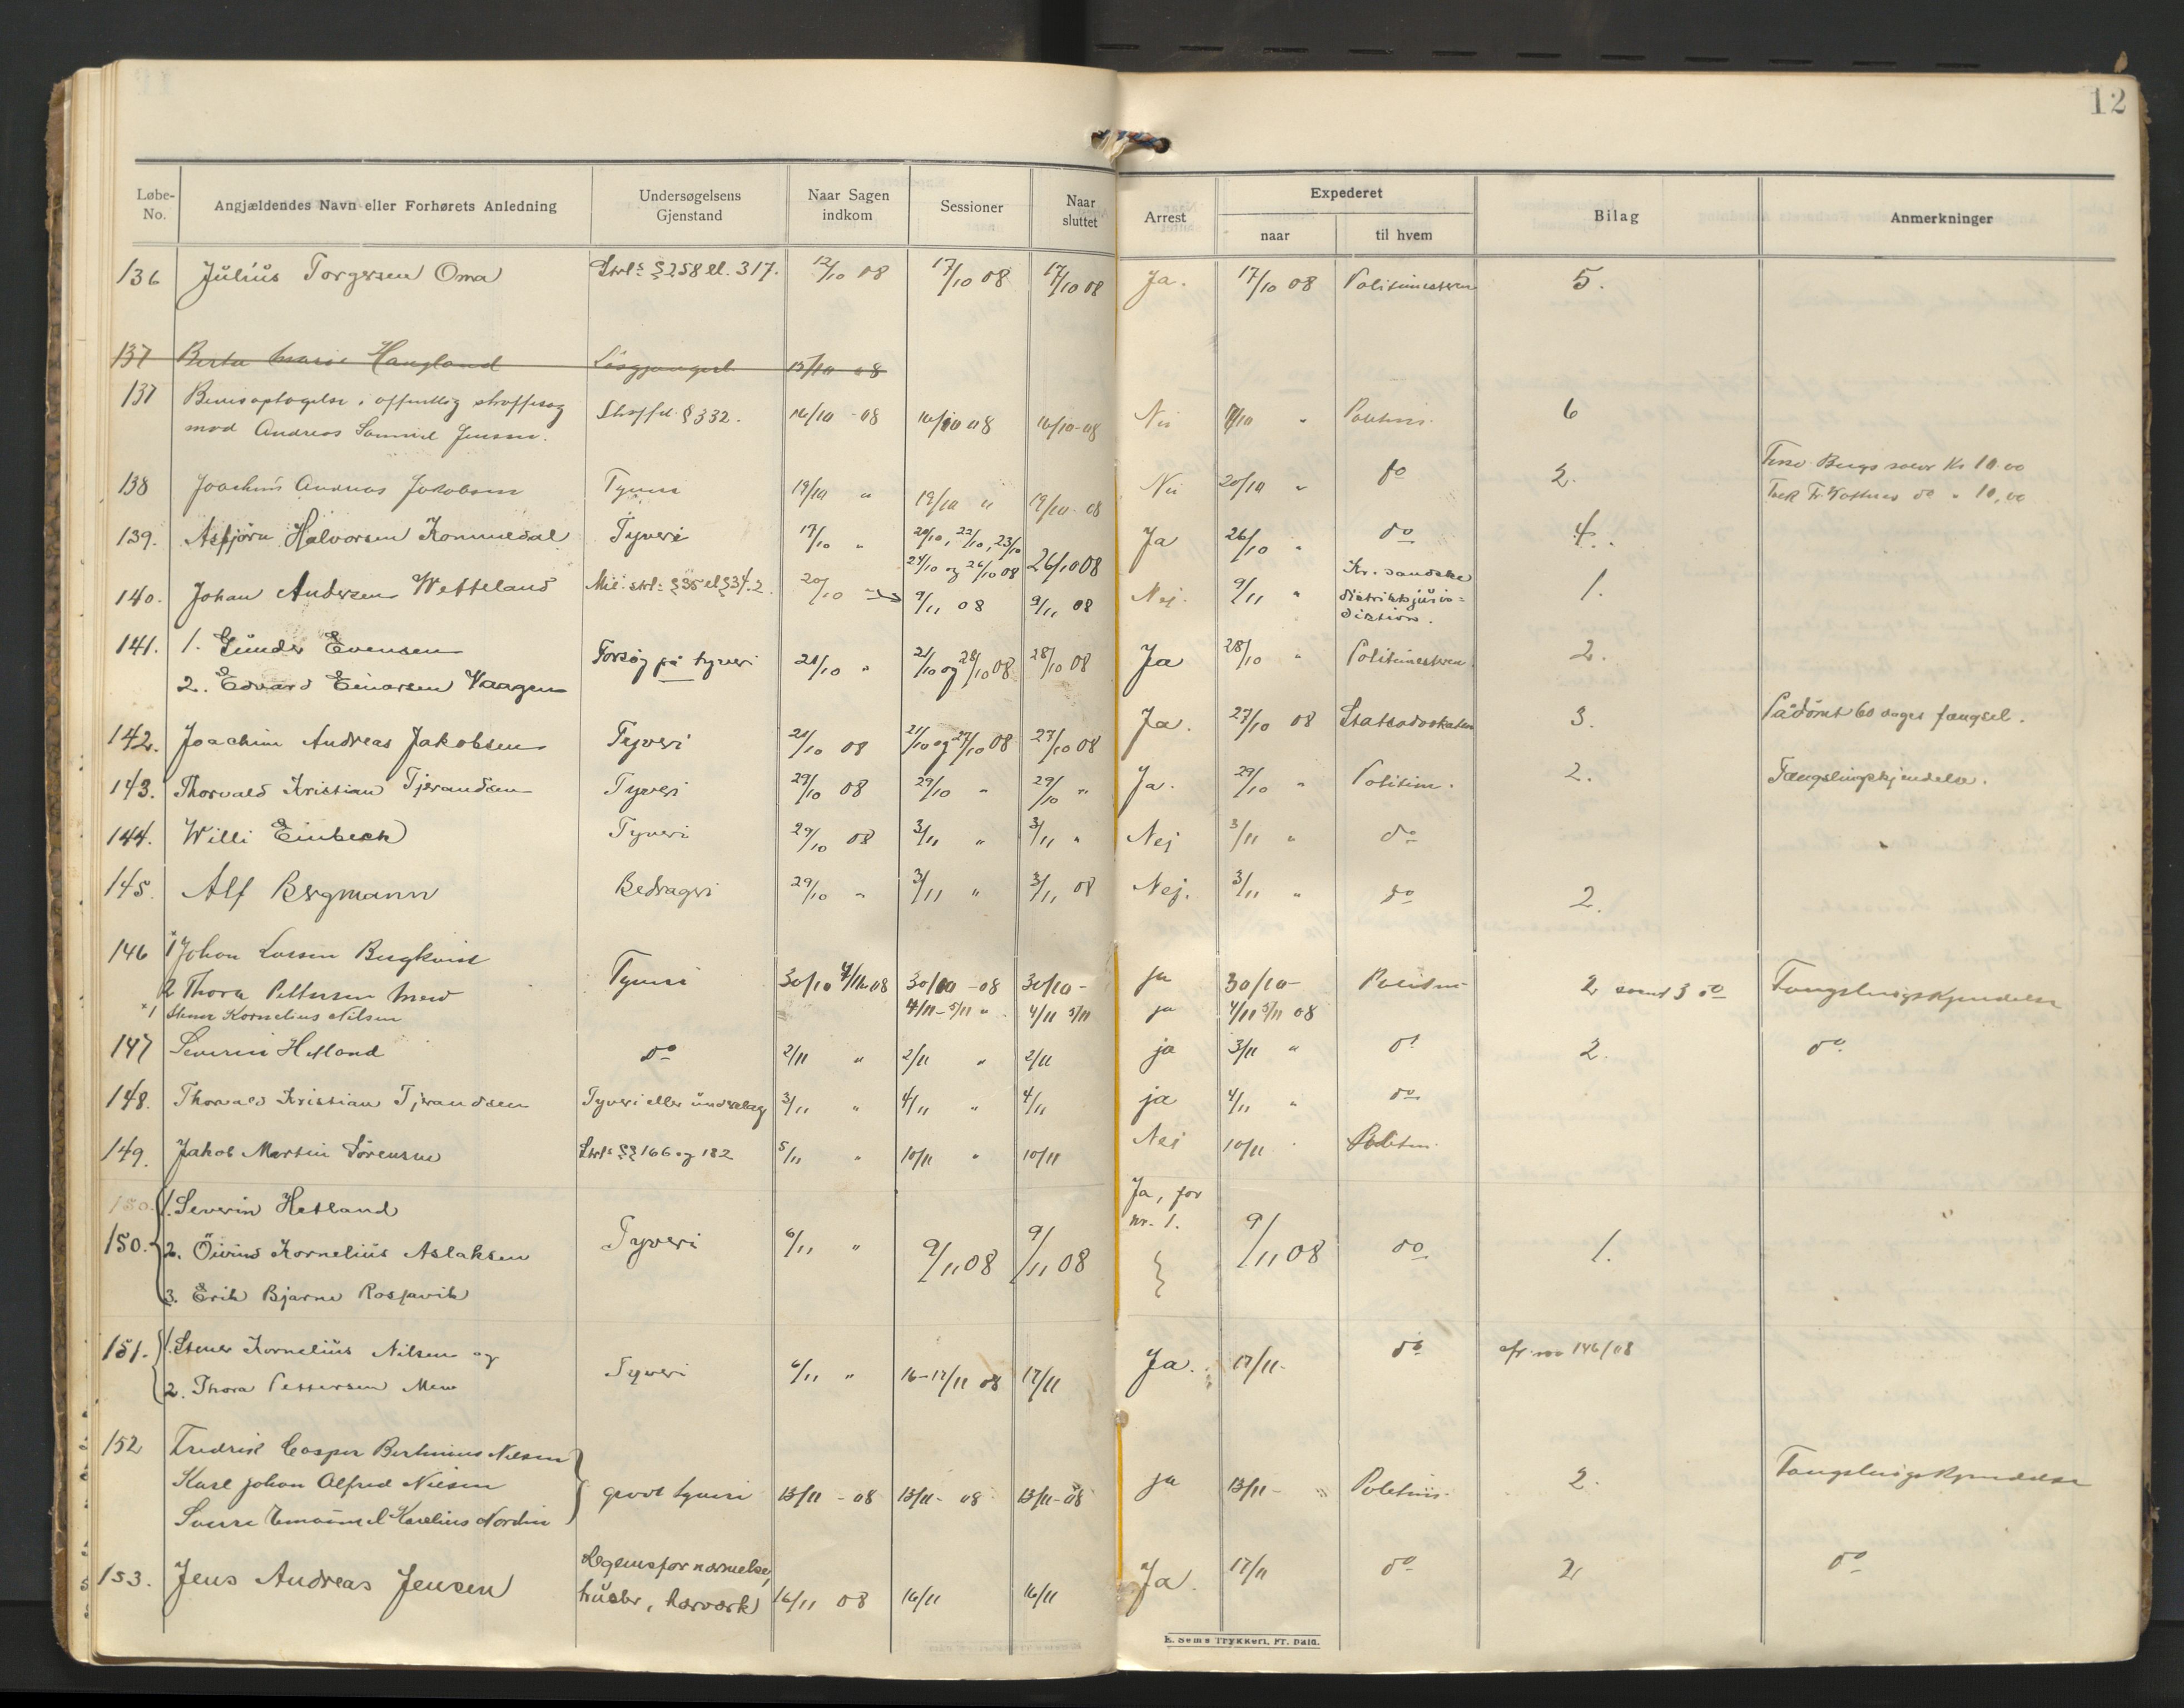 12
Løbe-No. Angjældendes Navn eller Forhørets Anledning Undersøgelsens Gjenstand Naar Sagen indkom Sessioner Naar sluttet Arrest Expederet naar til hvem Bilag Anmerkninger
136 Julius Torgersen Oma Strl: § 258 ell. 317. 12/10 08 17/10 08 17/10 08 Ja. 17/10 08 Politimesteren 5.
137 Berta Marie Haugland Løsgjængeri 15/10 08
137 Bevisoptagelse i offentlig straffesag Straffel § 332. 16/10 - 08 16/10 08 16/10-08 Nei /10 " Politim. 6
mod Andreas Samuel Jensen.
138 Joachim Andreas Jakobsen Tyveri 19/10 " 19/10 " 19/10 08 Nei 20/10 " do 2. Bergs salær Kr 10.00
do " 10,00
139. Asbjørn Halvorsen Kommedal Tyveri 17/10 " 20/10, 22/10, 23/10 Ja 26/10 " do 4.
24/10 og 26/10 08 26/10 08
140. Johan Andersen Wetteland Mil. strl: § 35 el § 34.2. 20/10 9/11 08 9/11 08 Nej. 9/11 " Kr.sandske distriktsjuris=diktion. 1.
141. 1. Gunder Evensen Forsøg på tyveri 21/10 " 21/10 og 28/10 08 28/10 08 Ja 28/10 " Politimesteren. 2.
2. Edvard Einarsen Vaagen
142. Joachim Andreas Jakobsen Tyveri 21/10 08 21/10 og 27/10 08 27/10 08 Ja. 27/10 08 Statsadvokaten 3. Pådömt 60 dages fængsel.
143. Thorvald Kristian Tjerandsen Tyveri 29/10 08 29/10 " 29/10 " Ja. 29/10 " Politim. 2. Fængslingskjendelse.
144. Willi Einbeck Tyveri 29/10 08 3/11 " 3/11 " Nej 3/11 " do
145. Alf Bergmann Bedrageri 29/10 " 3/11 " 3/11 08 Nej. 3/11 " do 2.
146 1 Johan Larsen Bergkvist
2 Thora Pettersen Mew Tyveri 30/10 4/11 08 30/10 -08 30/10 - ja 30/10 - Politm 2 samt 3 do Fængslingskjendelse
*1 Stener Kornelius Nilsen 4/11 - 5/11 " 4/11 5/11 ja 4/11 5/11 08
147 Severin Hetland do 2/11 " 2/11 " 2/11 ja 3/11 " do 2. do
148. Thorvald Kristian Tjerandsen Tyveri eller underslag 3/11 " 4/11 " 4/11 ja 4/11 " do
149. Jakob Martin Sörensen Strl: §§ 166 og 182 5/11 " 10/11 " 10/11 Nei 10/11 Politm.
150. 1. Severin Hetland Ja, for nr. 1.
150. 2. Öivind Kornelius Aslaksen Tyveri 6/11 " 9/11 08 9/11 08 9/11 08 do 1.
3. Erik Bjarne Rosjavik
151. 1. Stener Kornelius Nilsen og
2. Thora Pettersen Mew Tyveri 6/11 " 16-17/11 08 17/11 Ja. 17/11- do cfr. no 146/08
152 Fredrik Casper Bertinius Nilsen
Karl Johan Alfred Nilsen grovt tyveri 13/11 - 08 13/11 - 08 13/11 - 08 ja 13/11 - " Politim. 2. Fængslingskjendelse
Sverre Emanuel Karelius Nordin
153. Jens Andreas Jensen Legemsfornærmelse, husbr, hærværk 16/11 08 16/11 16/11 Ja. 17/11 do 2 do
E. Sem's Trykkeri, Fr.hald.